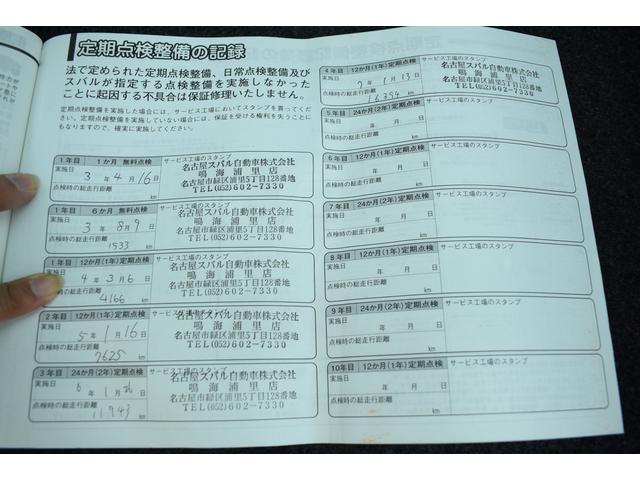 定期点検整備の記録
法で定められた定期点検整備、日常点検整備及び
スバルが指定する点検整備を実施しなかった
ことに起因する不具合は保証修理いたしません。
定期点検整備を実施した場合には、サービス工場においてスタンプを貰ってくだ
さい。定期点検整備を実施していない場合には、保証を受ける権利を失うことに
もなりますので、確実に実施してください。
1年目 1か月 無料点検 サービス工場のスタンプ
実施日 3年 4月 16日
点検時の総走行距離 km
名古屋スバル自動車株式会社
鳴海浦里店
名古屋市緑区浦里5丁目128番地
TEL(052)602-7330
1年目 6か月 無料点検 サービス工場のスタンプ
実施日 3年 8月 9日
点検時の総走行距離 1533 km
名古屋スバル自動車株式会社
鳴海浦里店
名古屋市緑区浦里5丁目128番地
TEL(052)602-7330
1年目 12か月(1年)定期点検 サービス工場のスタンプ
実施日 4年 3月 6日
点検時の総走行距離 4166 km
名古屋スバル自動車株式会社
鳴海浦里店
名古屋市緑区浦里5丁目128番地
TEL(052)602-7330
2年目 12か月(1年)定期点検 サービス工場のスタンプ
実施日 5年 1月 16日
点検時の総走行距離 7625 km
名古屋スバル自動車株式会社
鳴海浦里店
名古屋市緑区浦里5丁目128番地
TEL(052)602-7330
3年目 24か月(2年)定期点検
実施日 6年 1月 日
点検時の総走行距離 11943 km
名古屋スバル自動車株式会社
鳴海浦里店
名古屋市緑区浦里5丁目128番地
TEL(052)602-7330
4年目 12か月(1年)定期点検 サービス工場のスタンプ
実施日 7年 1月 13日
点検時の総走行距離 16354 km
名古屋スバル自動車株式会社
鳴海浦里店
名古屋市緑区浦里5丁目128番地
TEL(052)602-7330
5年目 24か月(2年)定期点検 サービス工場のスタンプ
実施日 年 月 日
点検時の総走行距離 km
6年目 12か月(1年)定期点検 サービス工場のスタンプ
実施日 年 月 日
点検時の総走行距離 km
7年目 24か月(2年)定期点検 サービス工場のスタンプ
実施日 年 月 日
点検時の総走行距離 km
8年目 12か月(1年)定期点検 サービス工場のスタンプ
実施日 年 月 日
点検時の総走行距離 km
9年目 24か月(2年)定期点検 サービス工場のスタンプ
実施日 年 月 日
点検時の総走行距離 km
10年目 12か月(1年)定期点検 サービス工場のスタンプ
実施日 年 月 日
点検時の総走行距離 km